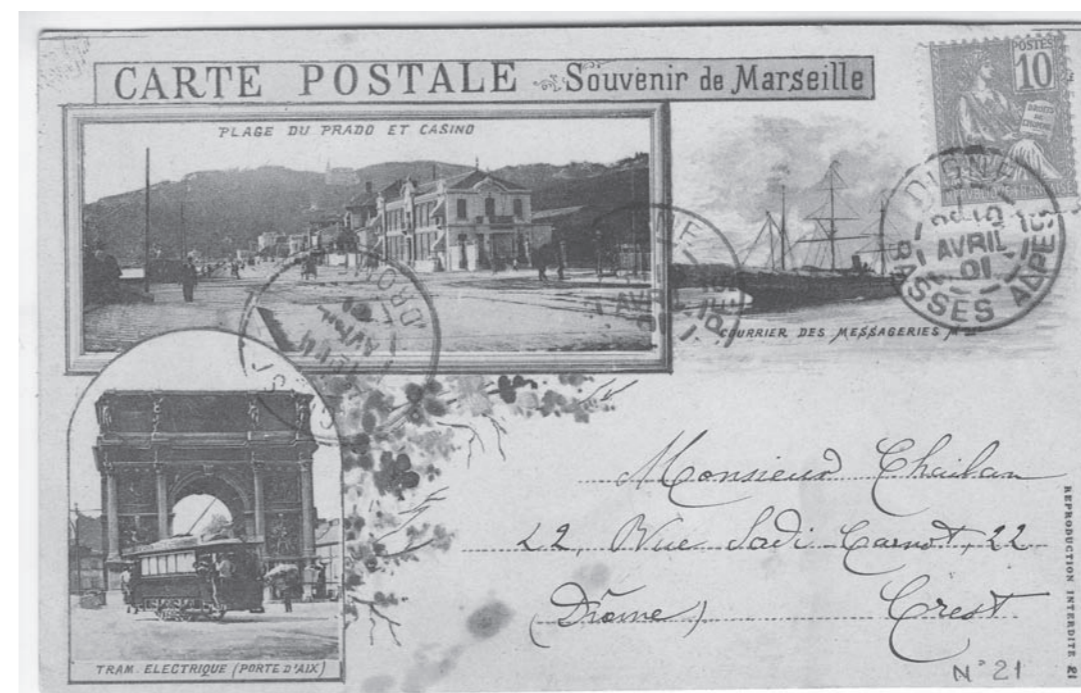 CARTE POSTALE Souvenir de Marseille
POSTES
10
DROITS DE L'HOMME
REPUBLIQUE FRANCAISE
PLAGE DU PRADO ET CASINO
DIGNE
AVRIL
01
BASSES ALPES
DROME
AVRIL
COURRIER DES MESSAGERIES M
TRAM. ELECTRIQUE (PORTE D'AIX)
Monsieur Chailan
22, Rue Sadi Carnot, 22
(Drôme) Crest
N° 21
REPRODUCTION INTERDITE 21